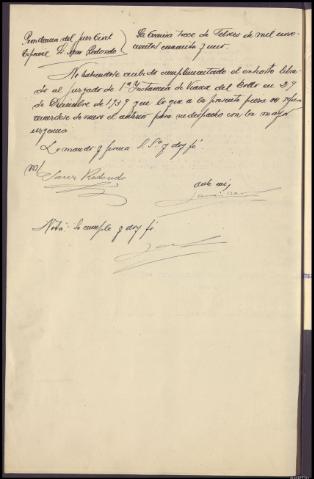 Providencia del Juez Civil
Especial Sr. Saez Redondo
La Coruña trece de Febrero de mil nove-
cientos cuarenta y uno.
No habiéndose recibido cumplimentado el exhorto libra
do al juzgado de 1ª Instancia de Viana del Bollo en 29
de Diciembre de 1939 que lo que a la presente pieza se
de nuevo el anterior para su despacho con la mayor
urgencia
Lo mandó y firma S. Sª y doy fe
Saez Redondo
ante mi,
Nota: Se cumple y doy fe